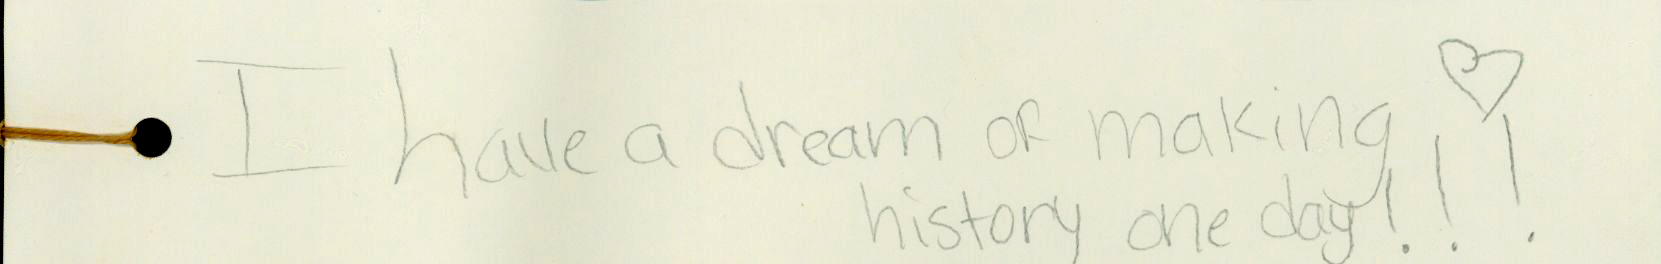 I have a dream of making
history one day!!!